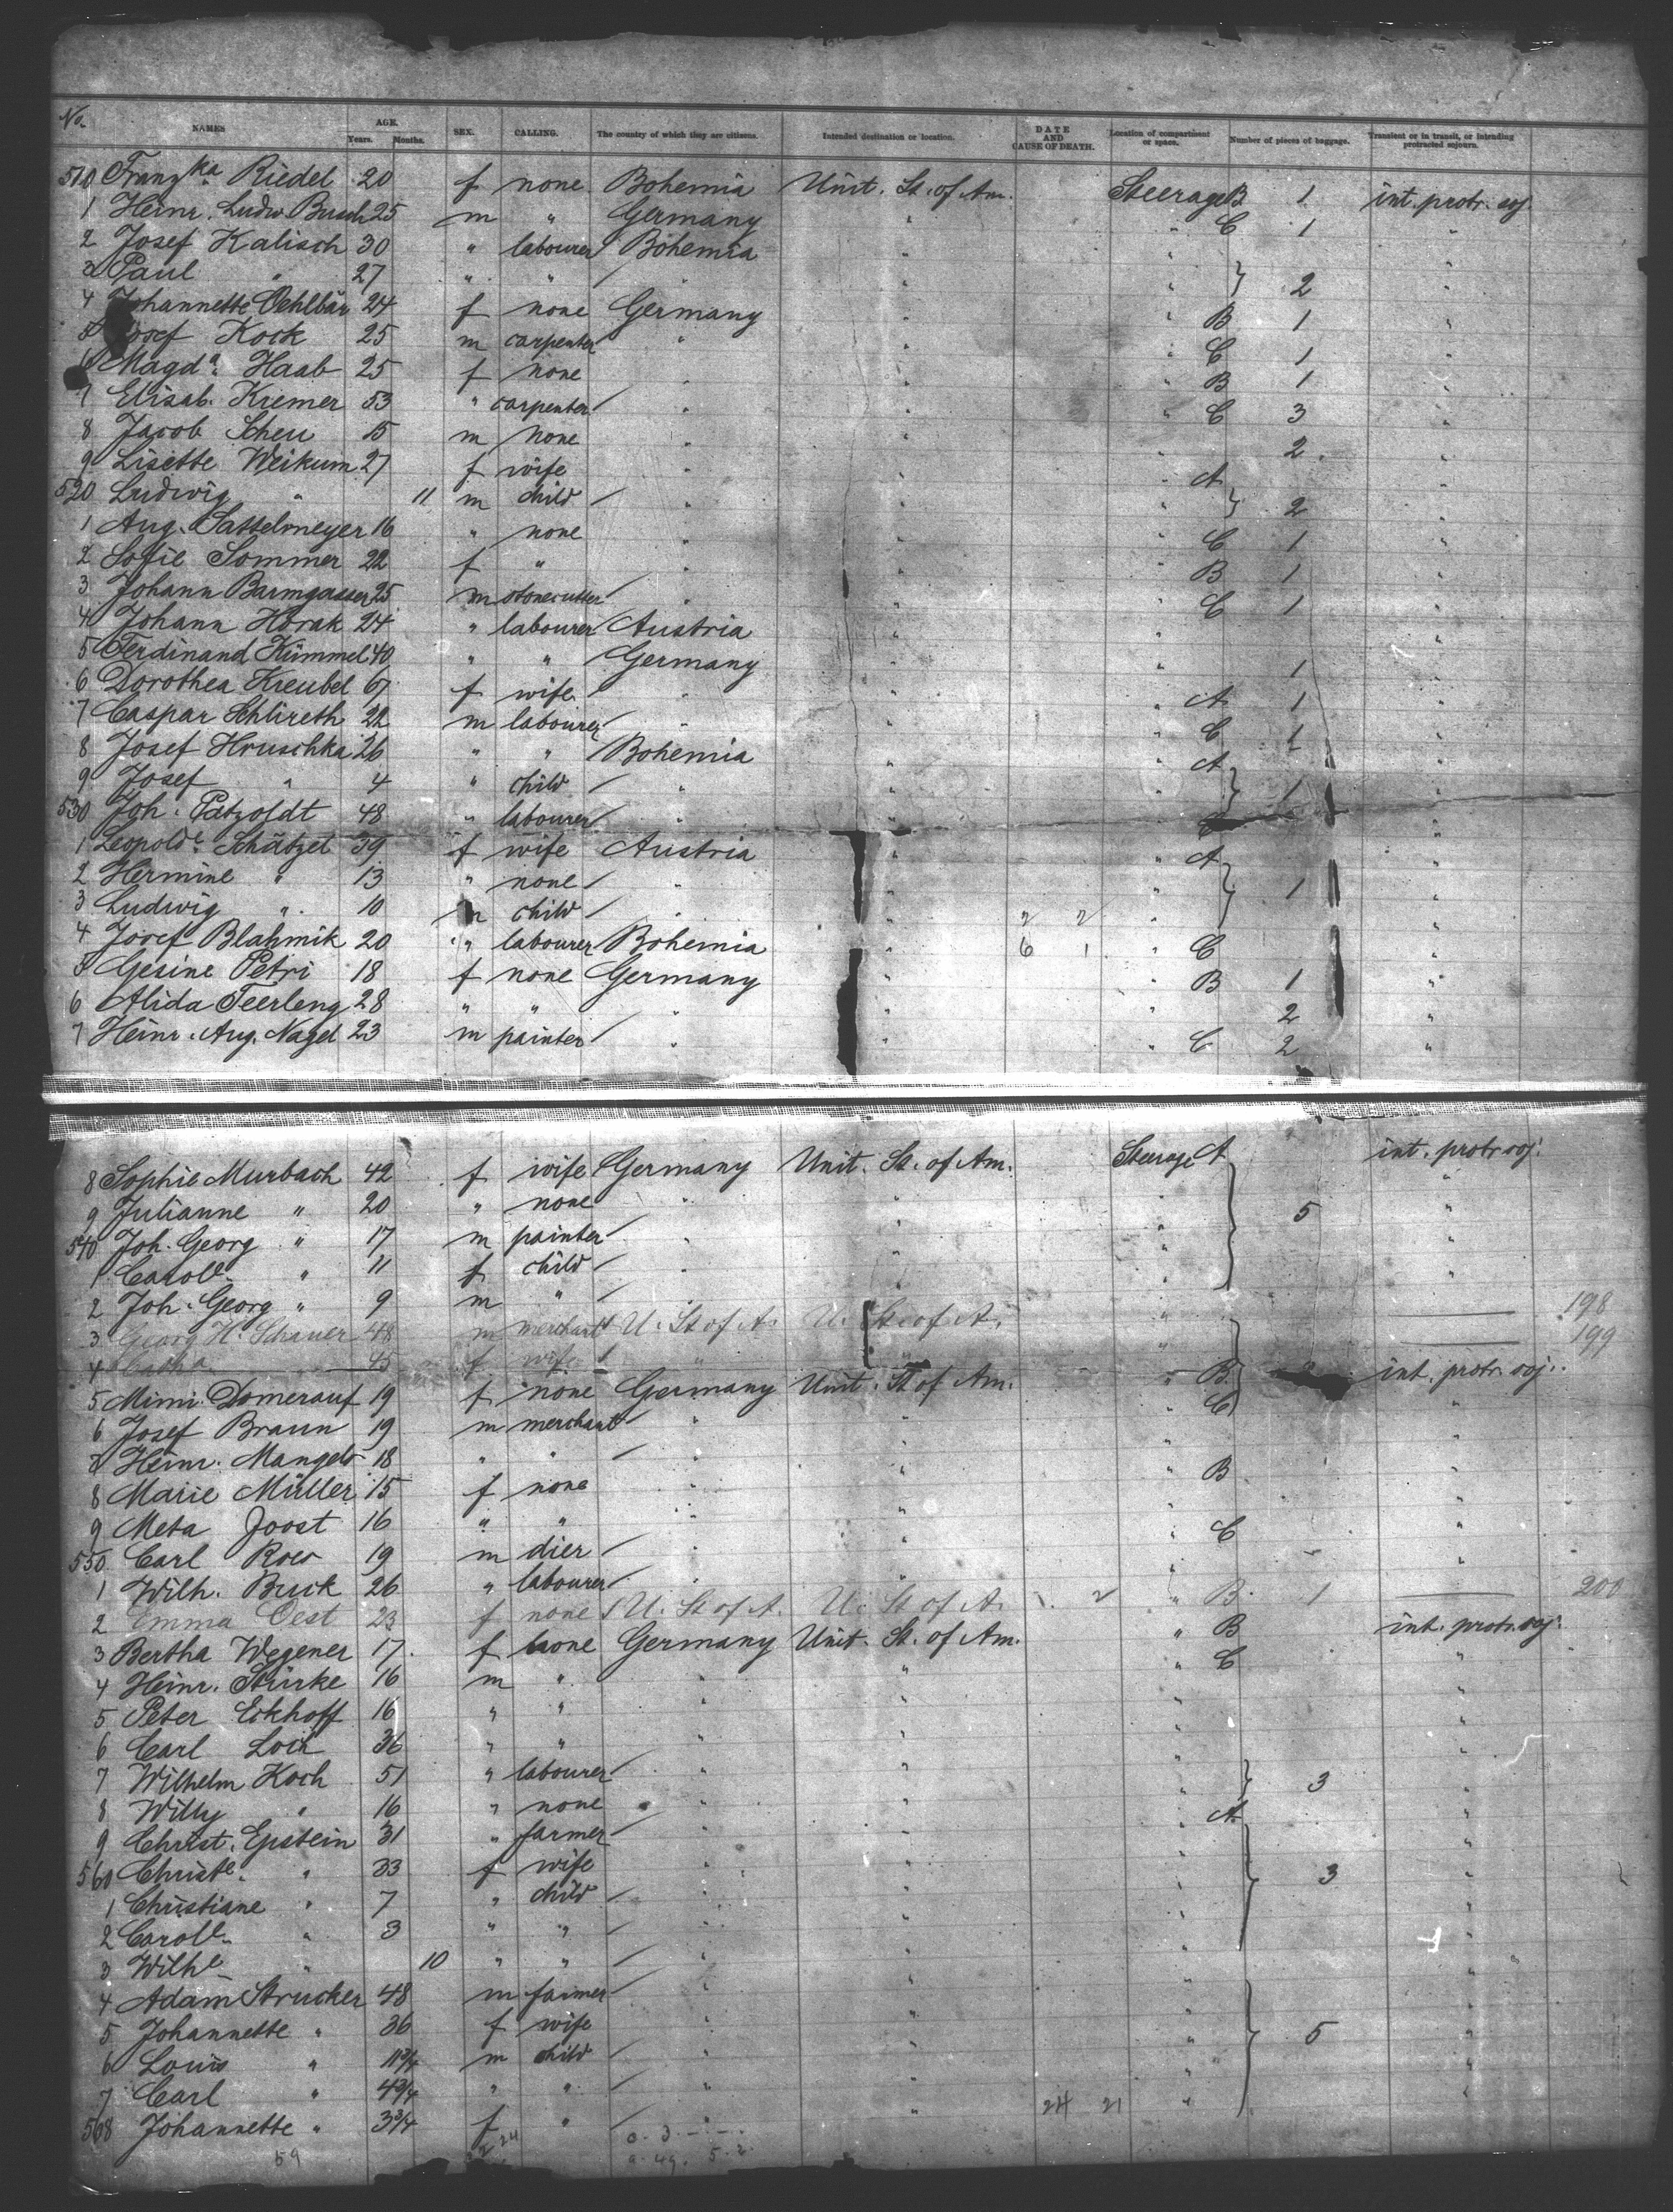 No. NAMES AGE. Years. Months. SEX. CALLING. The country of which they are citizens. Intended destination or location. DATE AND CAUSE OF DEATH. Location of compartment or space. Number of pieces of baggage. Transient or in transit, or intending protracted sojourn.
510 Franzka Riedel 20 f none Bohemia Unit. St. of Am. Steerage B 1 int. protr. soj.
1 Heinr. Ludw Busch 25 m " Germany " " C 1 "
2 Josef Kalisch 30 " labourer Bohemia " "
3 Paul " 27 " " " " } 2 "
4 Johannette Oehlbär 24 f none Germany " " B 1 "
5 Josef Kock 25 m carpenter " " " C 1 "
6 Magda. Haab 25 f none " " " B 1 "
7 Elisab. Kremer 53 " carpenter " " " C 3 "
8 Jacob Scheu 15 m none " " " 2 "
9 Lisette Weikum 27 f wife " " " A "
520 Ludwig " 11 m child " " " } 2 "
1 Aug. Sattelmeyer 16 " none " " " C 1 "
2 Sofie Sommer 22 f " " " " B 1 "
3 Johann Barmgasser 25 m stonecutter " " " C 1 "
4 Johann Horak 24 " labourer Austria " " "
5 Ferdinand Kümmel 40 " " Germany " " 1 "
6 Dorothea Kreubel 67 f wife " " " A 1 "
7 Caspar Schlireth 22 m labourer " " " C 1 "
8 Josef Hruschka 26 " " Bohemia " " A "
9 Josef " 4 " child " " " } 1 "
530 Joh. Patzoldt 48 " labourer " " "
1 Leopolde. Schätzel 39 f wife Austria " " A "
2 Hermine " 13 " none " " " } 1 "
3 Ludwig " 10 m child " " "
4 Josef Blahmik 20 " labourer Bohemia " 6 1 " C "
5 Gesine Petri 18 f none Germany " " B 1 "
6 Alida Feerleng 28 " " " " 2 "
7 Heinr. Aug. Nagel 23 m painter " " " C 2 "
8 Sophie Murbach 42 f wife Germany Unit. St. of Am. Steerage A int. protr. soj.
9 Julianne " 20 " none " " " } 5 "
540 Joh. Georg " 17 m painter " " " "
1 Carole. " 11 f child " " " "
2 Joh. Georg " 9 m " " "
3 Georg H. Schauer 48 m merchant U. St of A. U. St of A. " 198
4 45 f wife " " " 199
5 Mimi Domerauf 19 f none Germany Unit. St of Am. " B int. protr. soj.
6 Josef Braun 19 m merchant " " " C "
7 Heinr. Mangels 18 " " " " "
8 Marie Müller 15 f none " " " B "
9 Meta Joost 16 " " " " "
550 Carl Roes 19 m dier " " " C "
1 Wilh. Buck 26 " labourer " " " "
2 Emma Oest 23 f none U. St of A. U. St of A. " B 1 200
3 Bertha Wegener 17 f none Germany Unit. St. of Am. " B int. protr. soj.
4 Heinr. Stürke 16 m " " " " C "
5 Peter Eckhoff 16 " " " " "
6 Carl Loih 36 " " " " " "
7 Wilhelm Koch 51 " labourer " " " } 3 "
8 Willy " 16 " none " " "
9 Christ. Epstein 31 " farmer " " " A "
560 Christe. " 33 f wife " " " } 3 "
1 Christiane " 7 " child " " " "
2 Carole. " 3 " " " " " "
3 Wilhe " 10 " " " " " "
4 Adam Strucker 48 m farmer " " " "
5 Johannette " 36 f wife " " " } 5 "
6 Louis " 11 3/4 m child " " " "
7 Carl " 4 3/4 " " " " " "
568 Johannette " 3 3/4 f " " 24 21 "
59